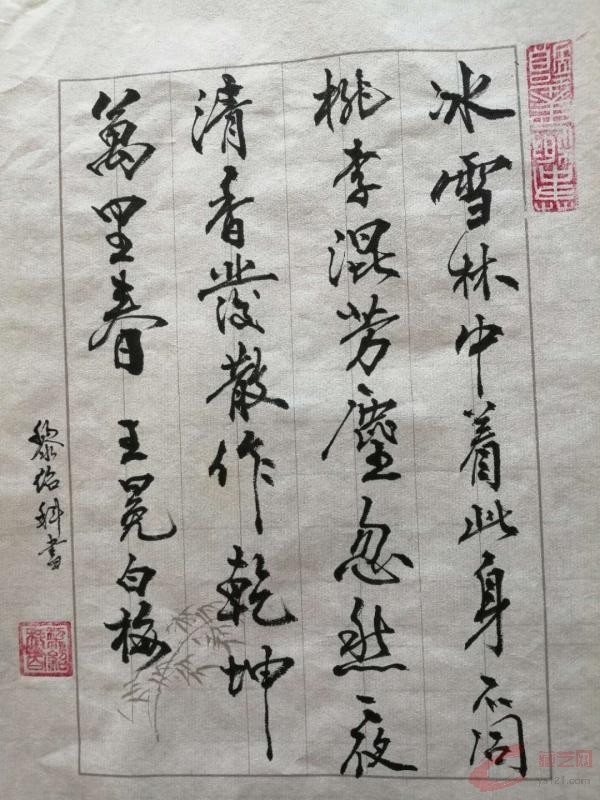 冰雪林中着此身不同
桃李混芳塵忽然一夜
清香發散作乾坤
萬里春 王冕白梅
黎紹科書